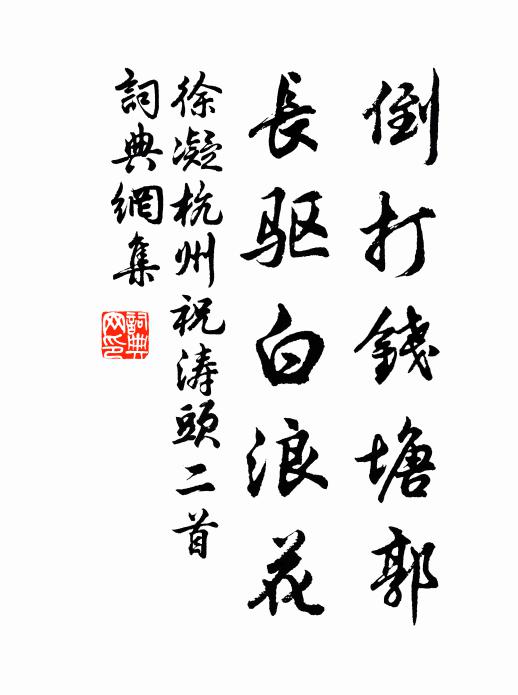 倒打錢塘郭
長驱白浪花
徐凝杭州祝涛頭二首
詞典網集
詞典網印